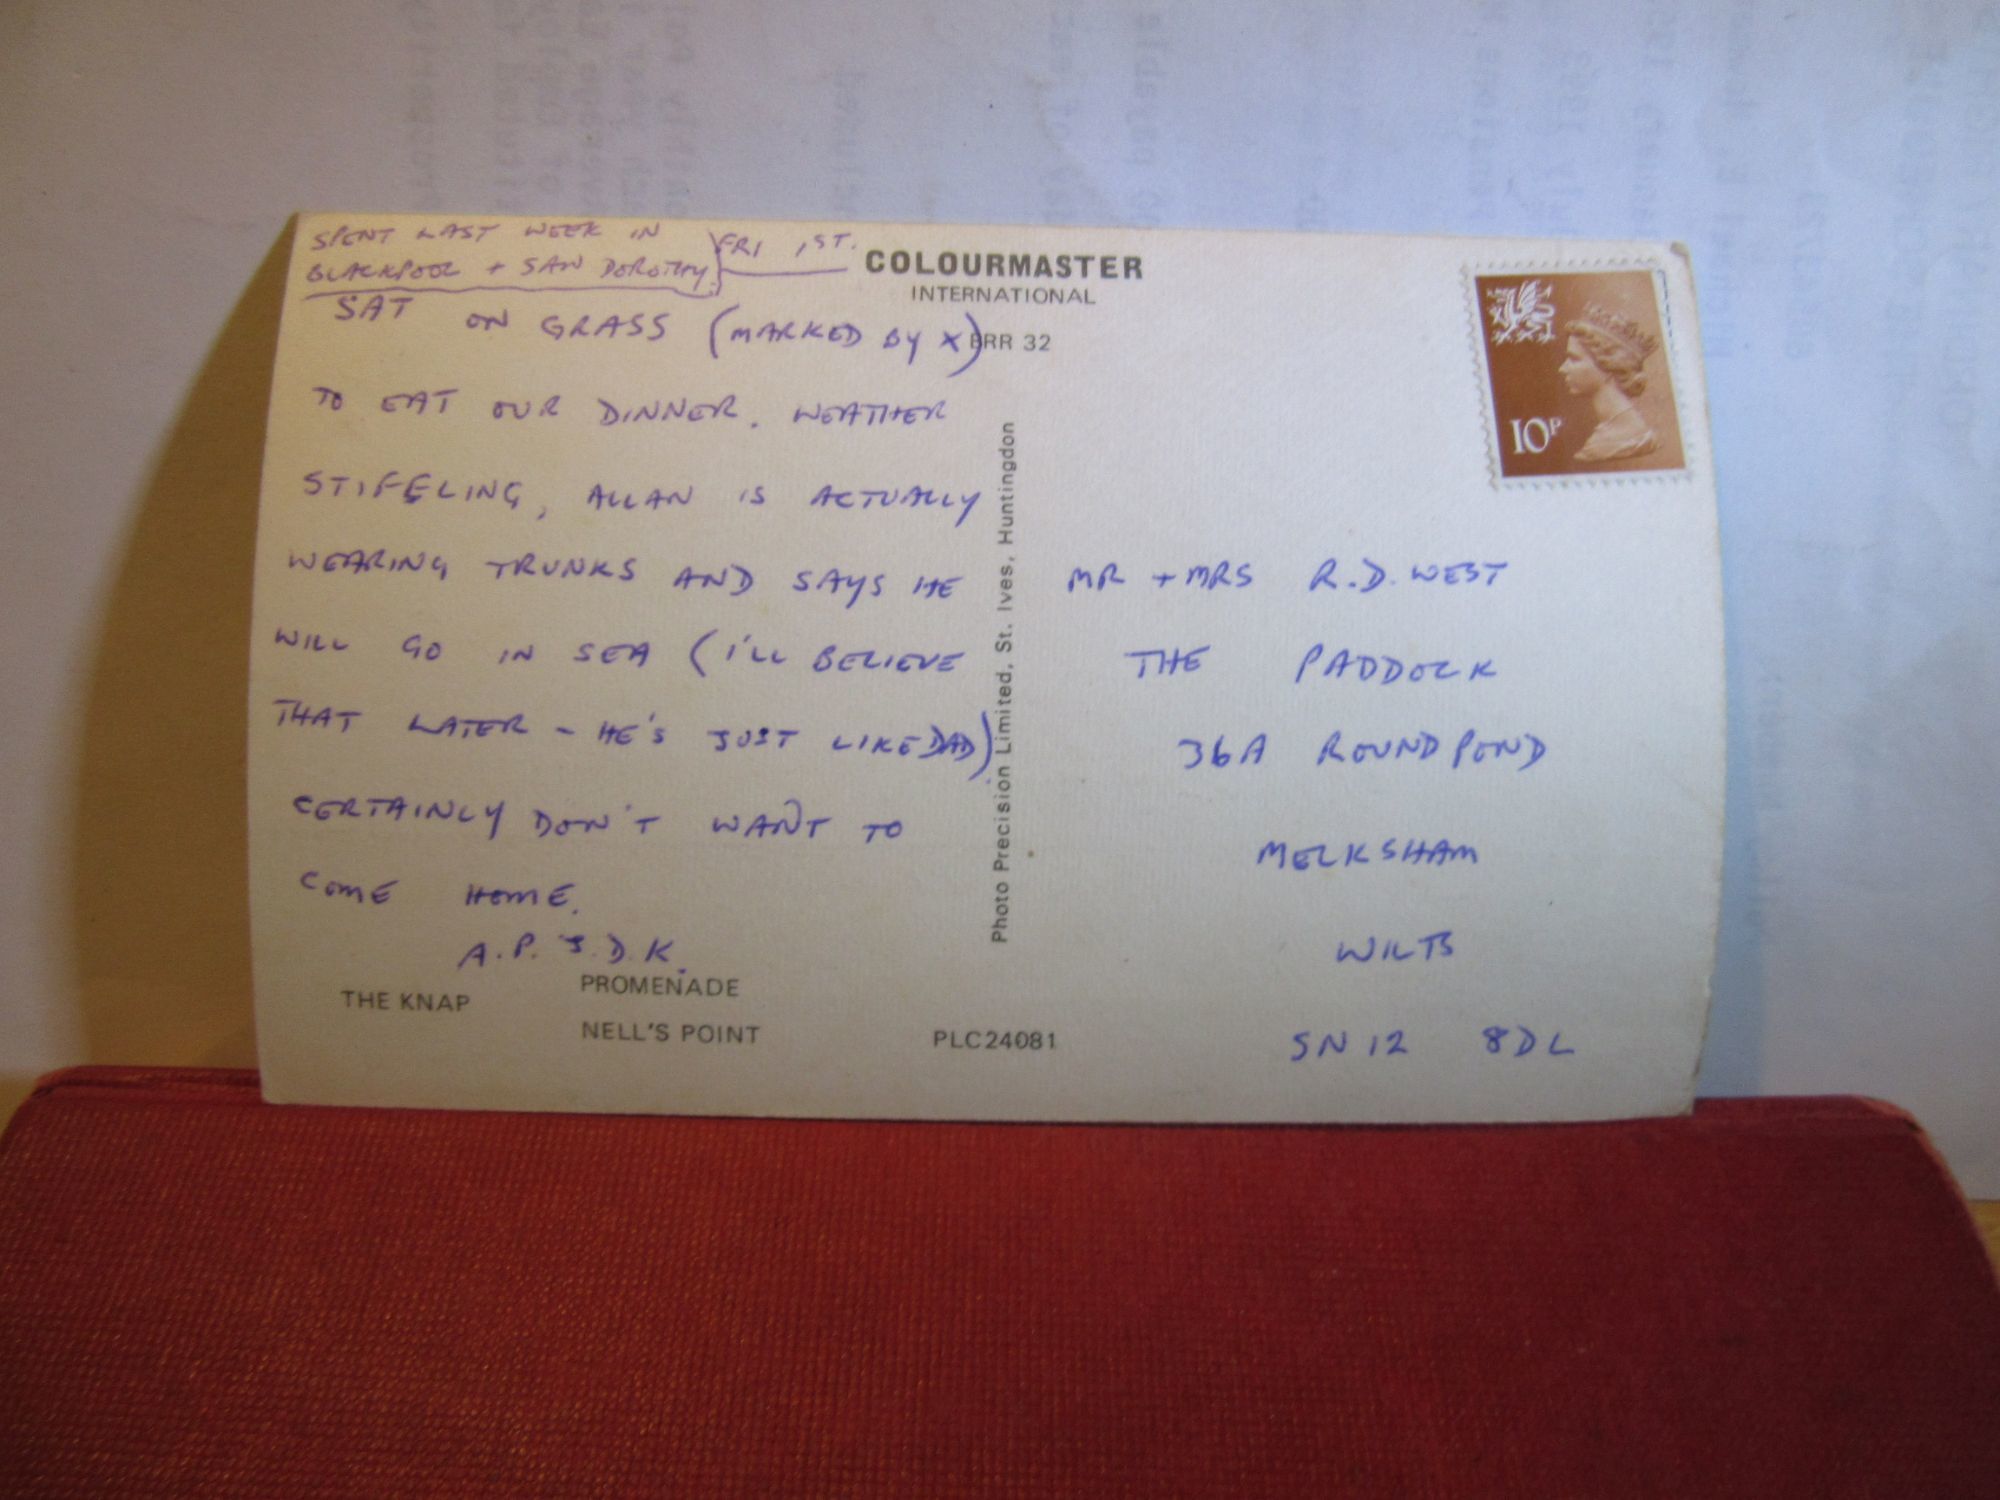 SPENT LAST WEEK IN
BLACKPOOL + SAW DOROTHY.
FRI 1ST.
COLOURMASTER
INTERNATIONAL
SAT ON GRASS (MARKED BY X)
BRR 32
TO EAT OUR DINNER. WEATHER
STIFELING, ALLAN IS ACTUALLY
WEARING TRUNKS AND SAYS HE
WILL GO IN SEA (I'LL BELIEVE
THAT LATER - HE'S JUST LIKE DAD)
CERTAINLY DON'T WANT TO
COME HOME.
A.P. J.D.K.
THE KNAP
PROMENADE
NELL'S POINT
PLC24081
Photo Precision Limited, St. Ives, Huntingdon
10P
MR + MRS R.D. WEST
THE PADDOCK
36A ROUNDPOND
MELKSHAM
WILTS
SN12 8DL